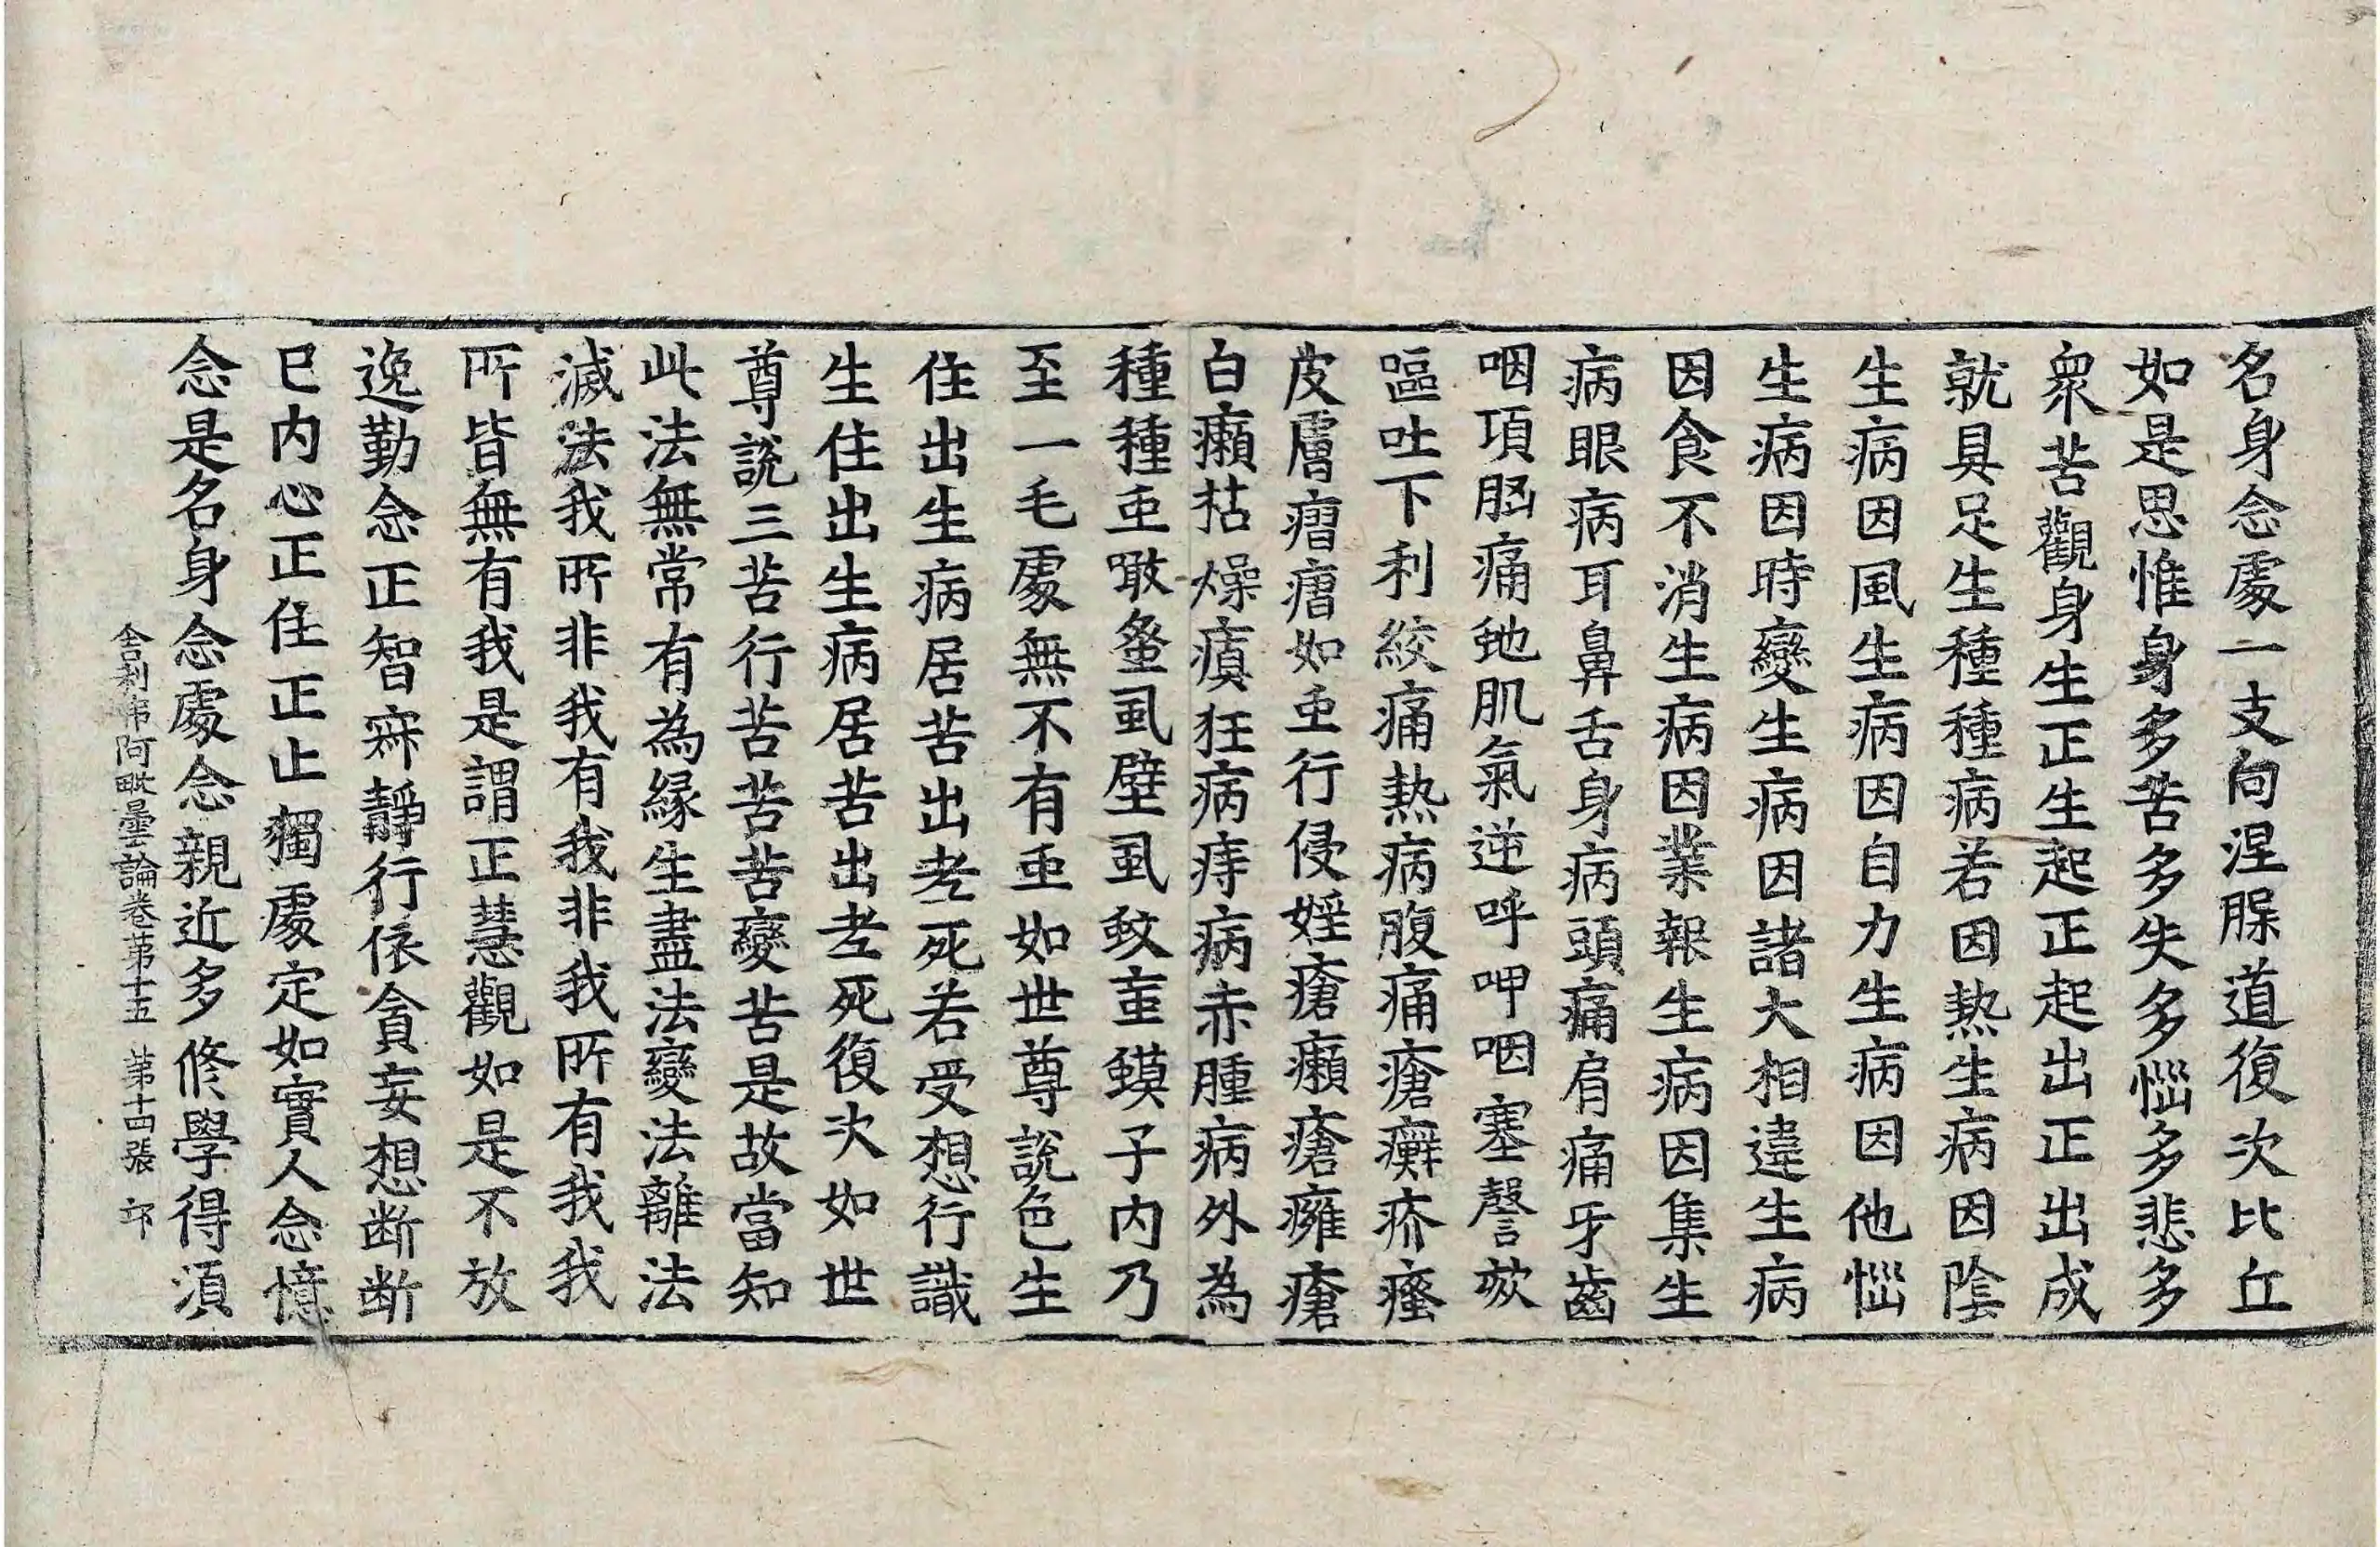 名身念處一支向涅槃道復次比丘
如是思惟身多苦多失多惱多悲多
衆苦觀身生正生起正起出正出成
就具足生種種病若因熱生病因陰
生病因風生病因自力生病因他惱
生病因時變生病因諸大相違生病
因食不消生病因業報生病因集生
病眼病耳鼻舌身病頭痛肩痛牙齒
咽項 痛 肌氣逆呼呷咽塞謦欬
嘔吐下利絞痛熱病腹痛瘡癬疥瘙
皮膚瘤瘤如䖝行侵婬瘡癩瘡癰瘡
白癩枯燥瘨狂病痔病赤腫病外為
種種䖝噉蚤虱壁虱蚊䖝蟆子内乃
至一毛處無不有䖝如世尊說色生
住出生病居苦出老死若受想行識
生住出生病居苦出老死復次如世
尊說三苦行苦苦苦變苦是故當知
此法無常有為緣生盡法變法離法
滅法我所非我有我非我所有我我
所皆無有我是謂正慧觀如是不放
逸勤念正智寂靜行依貪妄想断断
已内心正住正止獨處定如實人念憶
念是名身念處念親近多修學得須
舍利弗阿毗曇論卷苐十五 苐十四張 卭